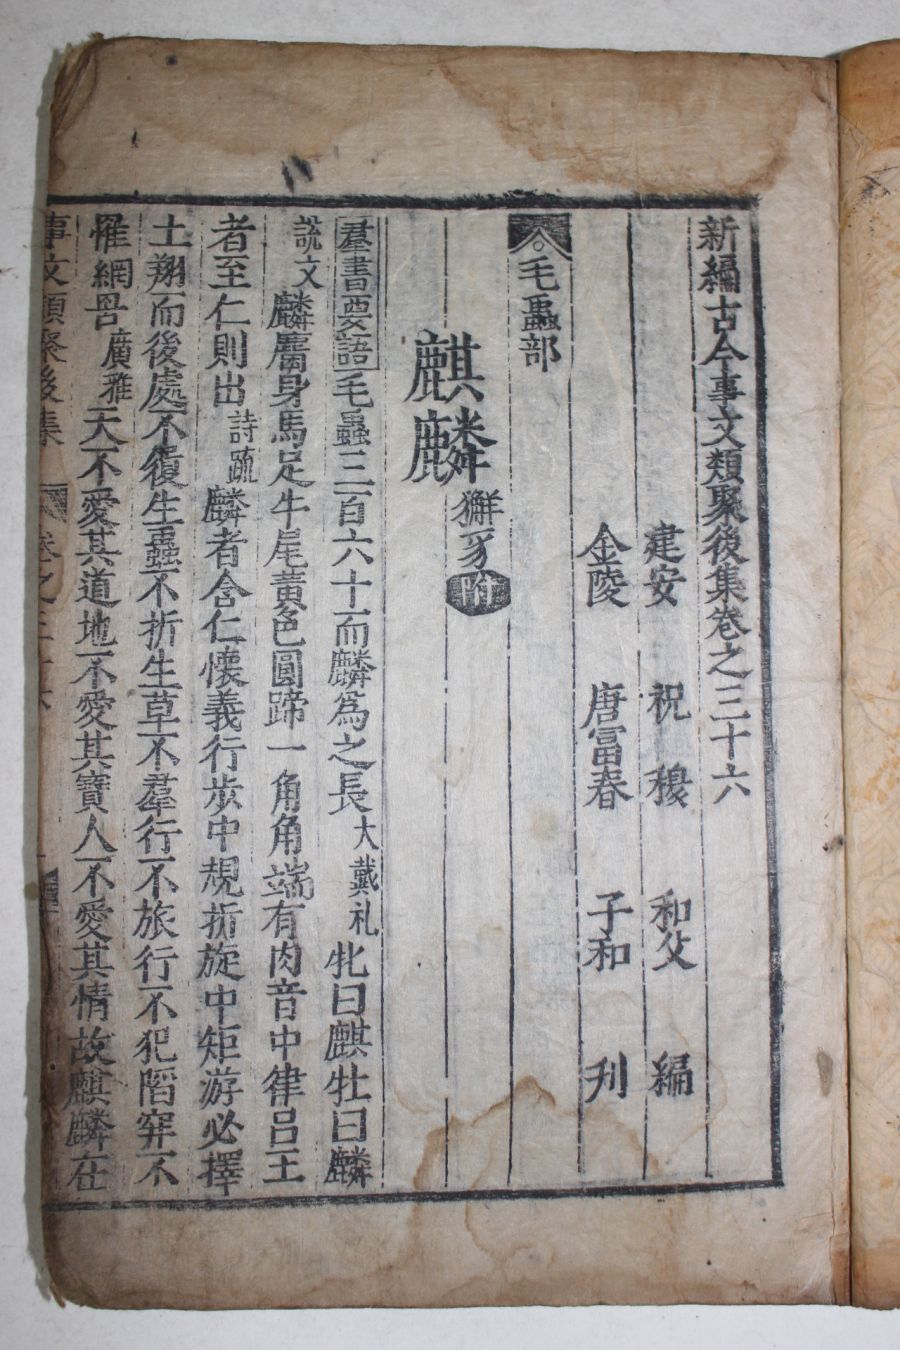 新編古今事文類聚後集卷之三十六
建安 祝穆 和父 編
金陵 唐富春 子和 刋
毛蟲部
麒麟 獬豸 附
羣書要語 毛蟲三百六十而麟爲之長 大戴礼 牝曰麒牡曰麟
說文 麟麕身馬足牛尾黃色圓蹄一角角端有肉音中律呂王
者至仁則出 詩疏 麟者含仁懷義行步中規折旋中矩游必擇
土翔而後處不履生蟲不折生草不羣行不旅行不犯陷穽不
罹網罟 廣雅 天不愛其道地不愛其寶人不愛其情故麒麟在
事文類聚後集 卷之三十六